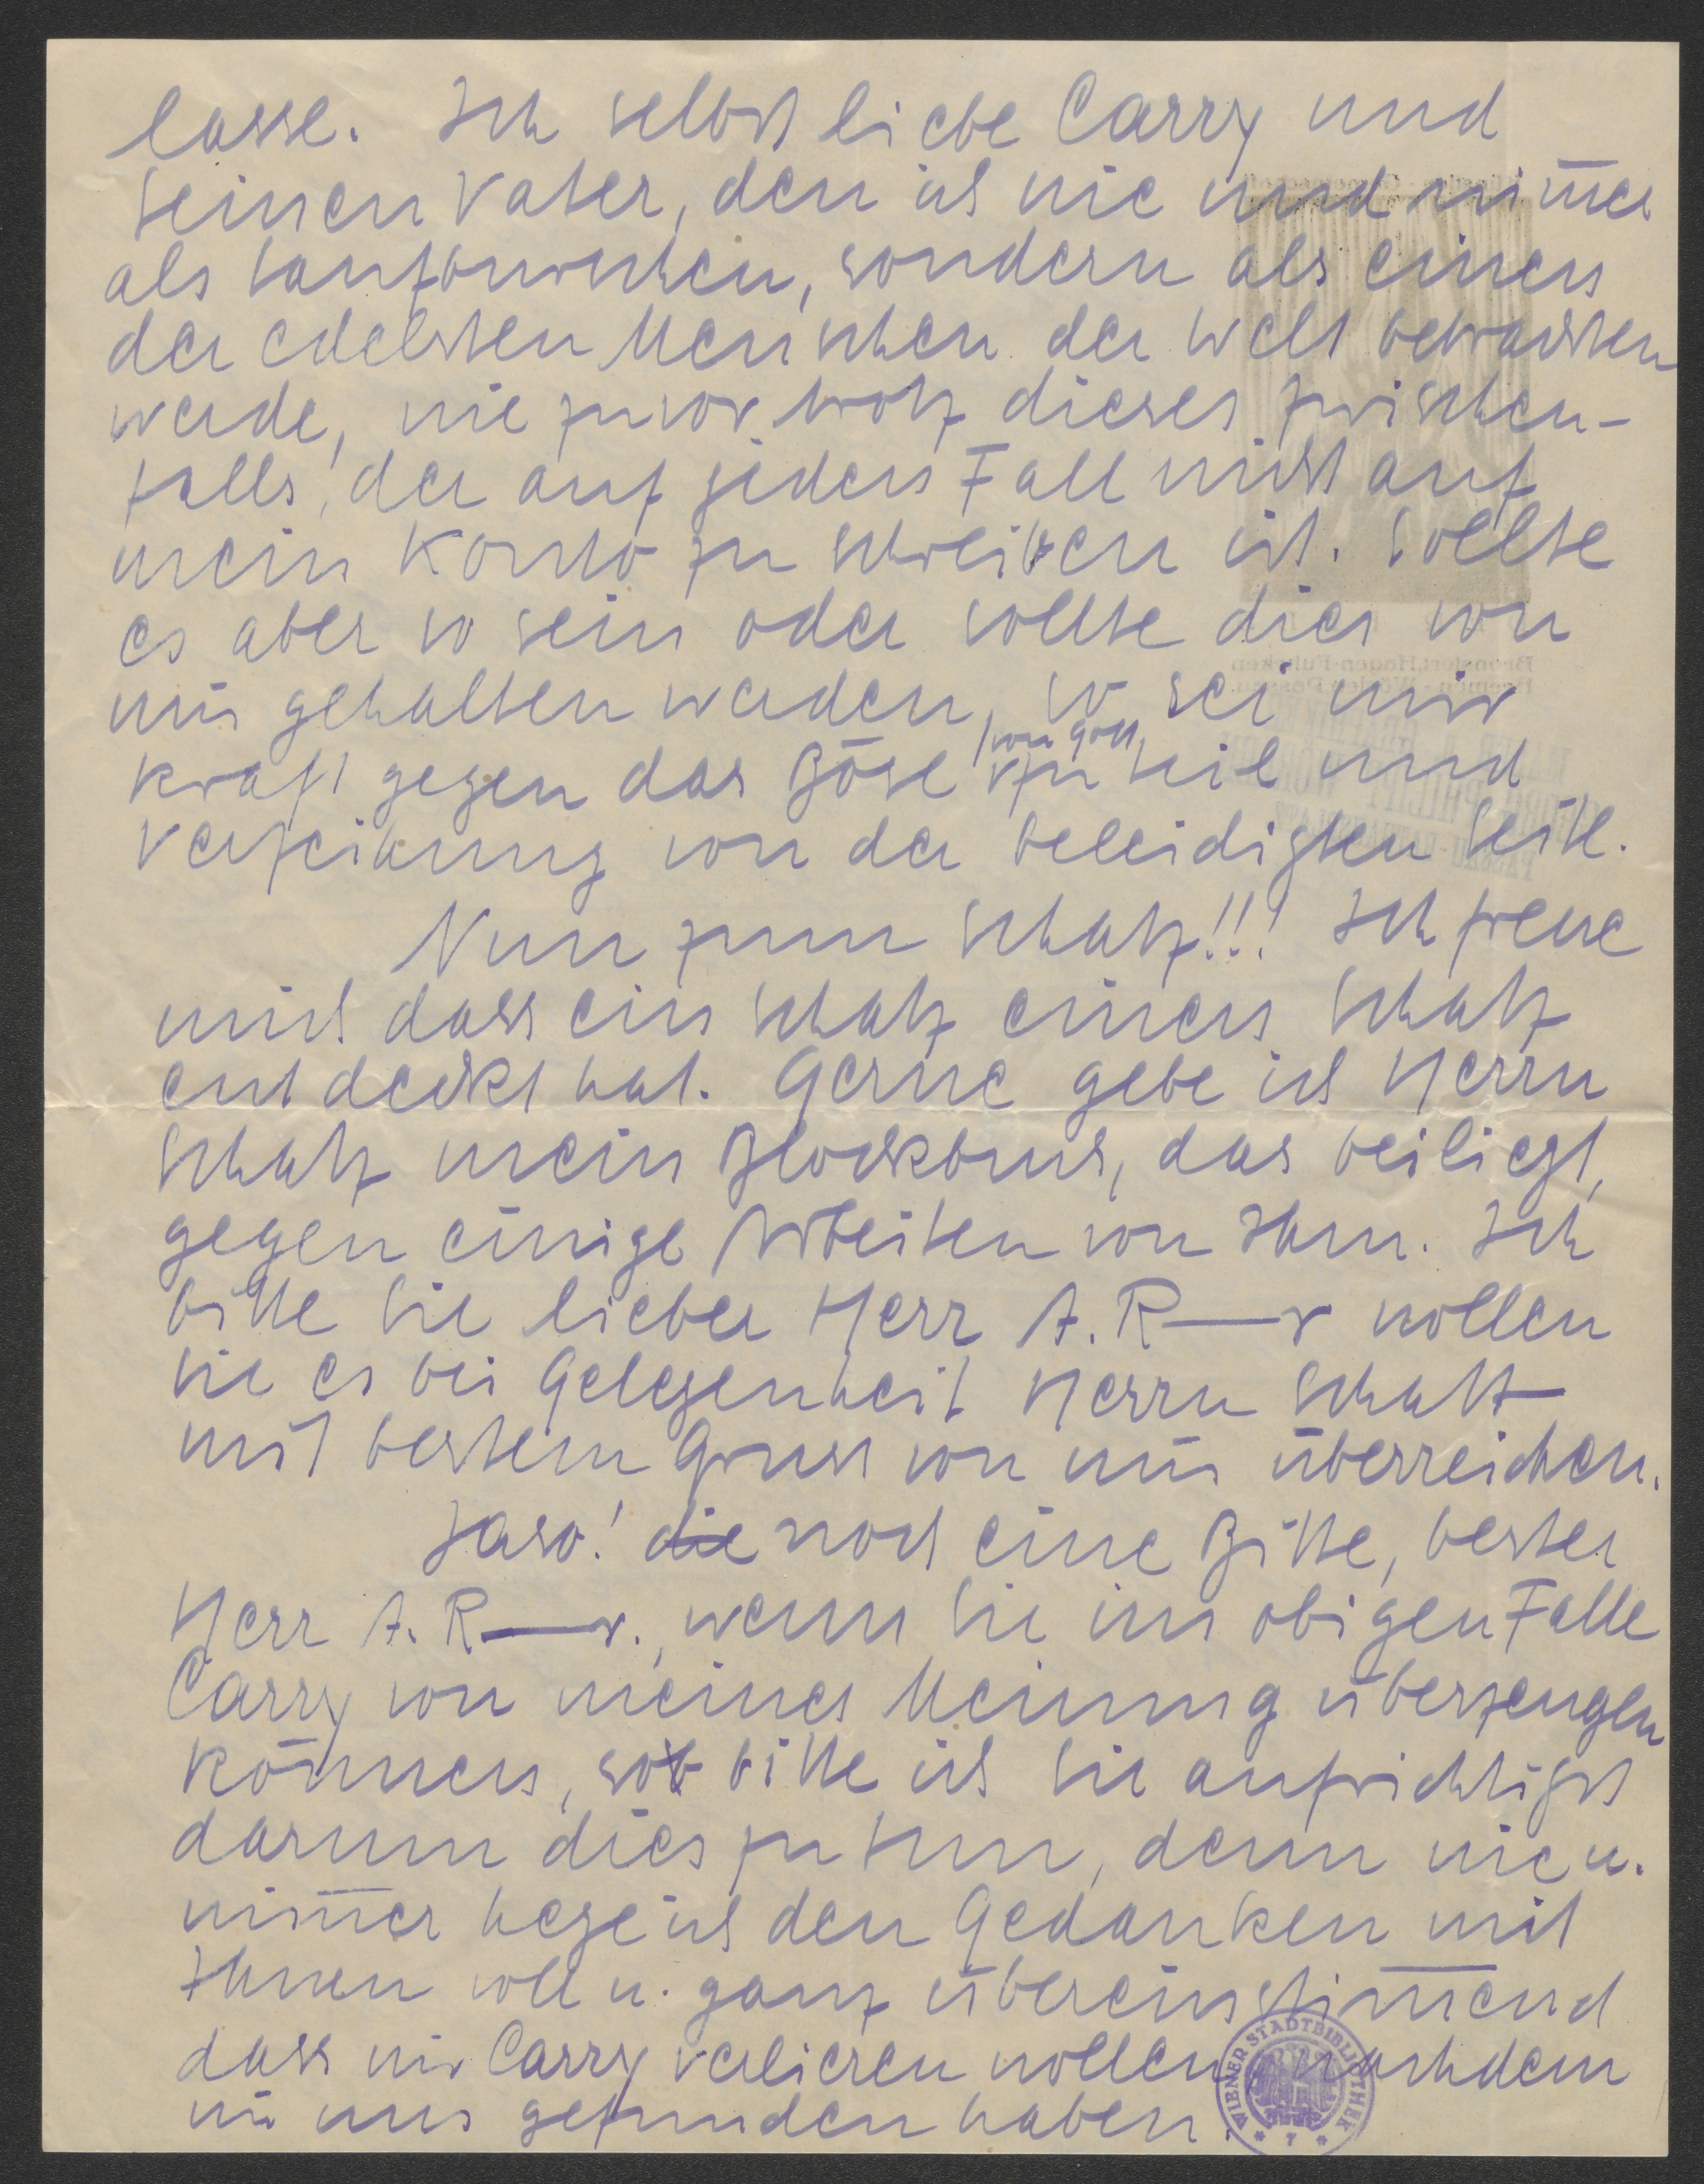 lasse. Ich selbst liebe Carry und
seinen Vater, den ich nie und nim̅er
als Laufburschen, sondern als einen
der edelsten Menschen der Welt betrachten
werde, wie zuvor trotz dieses Zwischen-
falls, der auf jeden Fall nicht auf
mein Konto zu schreiben ist. Sollte
es aber so sein oder sollte dies von
mir gehalten werden, so sei mir
Kraft gegen das Böse von Gott zuteil und
Verzeihung von der beleidigten Seite.
Nun zum Schatz!!! Ich freue
mich dass ein Schatz einen Schatz
entdeckt hat. Gerne gebe ich Herrn
Schatz mein Blockbuch, das beiliegt,
gegen einige Arbeiten von Ihm. Ich
bitte Sie lieber Herr A. R—r wollen
Sie es bei Gelegenheit Herrn Schatz
mit bestem Gruss von mir überreichen.
Jaso! die noch eine Bitte, bester
Herr A. R—r., wenn Sie im obigen Falle
Carry von meiner Meinung überzeugen
können, so bitte ich Sie aufrichtigst
darum dies zu tun, denn nie u.
nim̅er hege ich den Gedanken mit
Ihnen voll u. ganz übereinstim̅end
dass wir Carry verlieren wollen nachdem
wir uns gefunden haben.
WIENER STADTBIBLIOTHEK